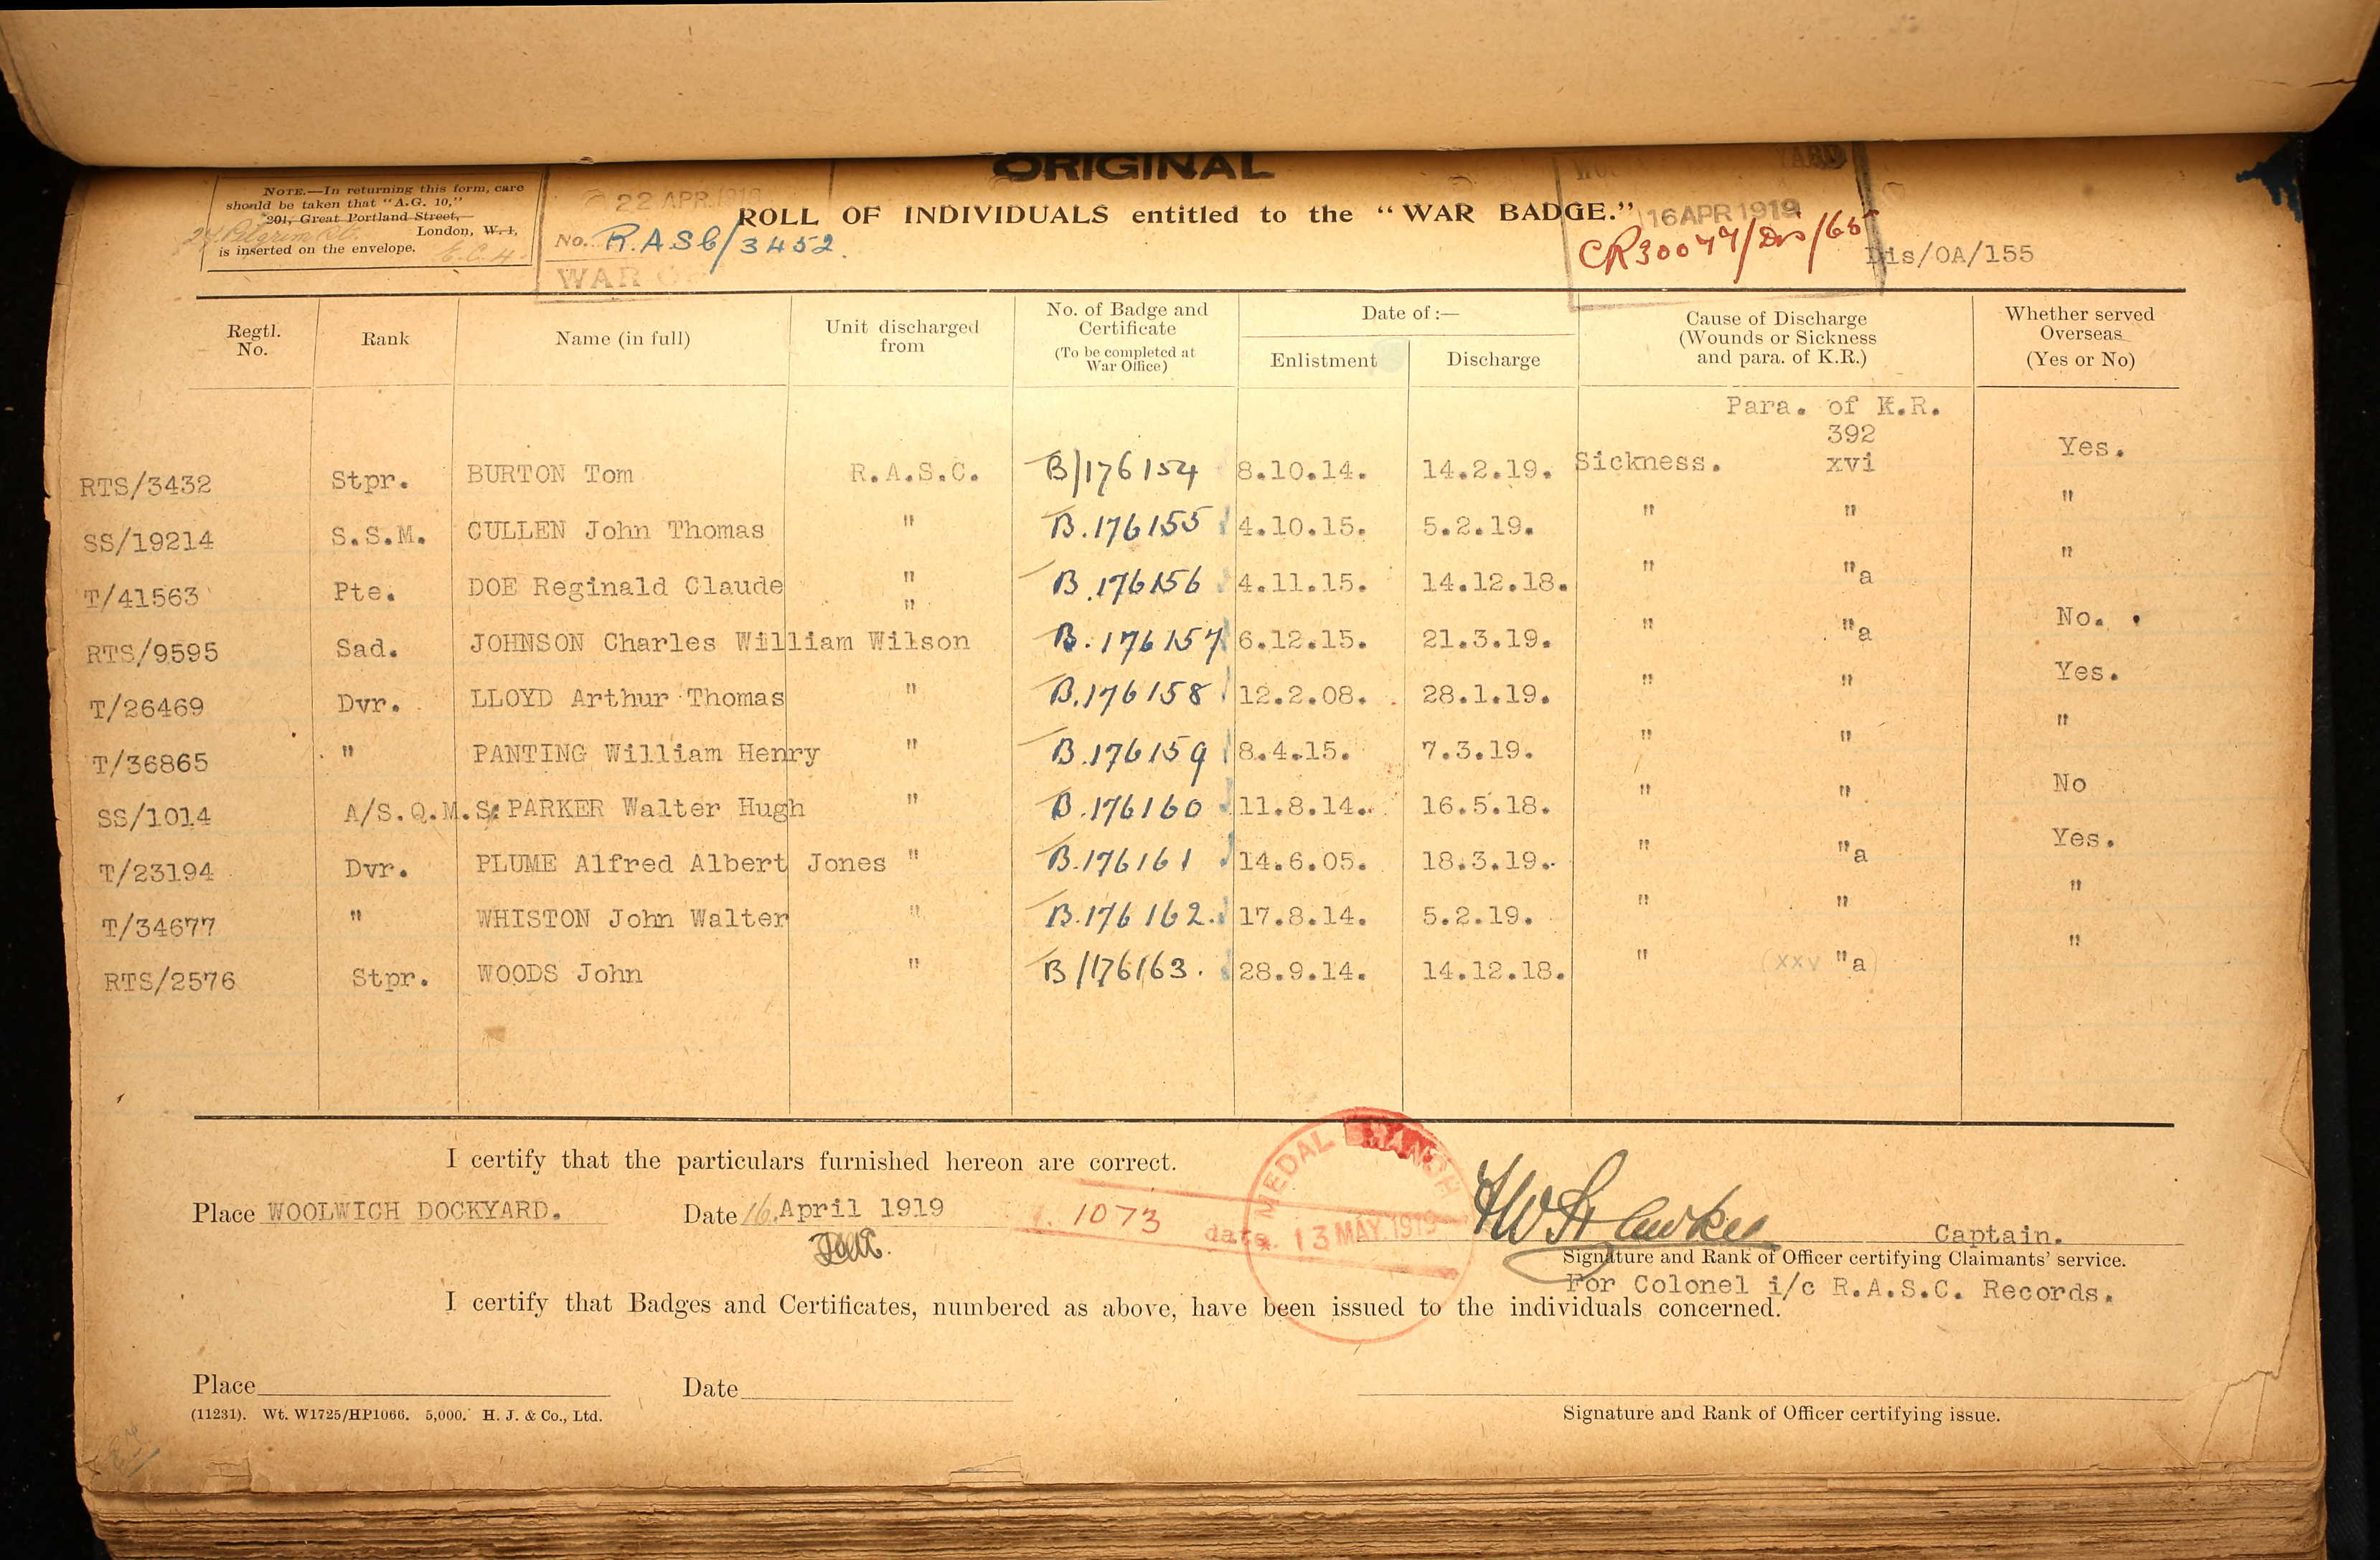 ORIGINAL
NOTE.—In returning this form, care
should be taken that "A.G. 10,"
201, Great Portland Street,
24 Pilgrim St. London, W.1,
is inserted on the envelope. E.C.4.
22 APR 1919
No. R.ASC/3452.
WAR
ROLL OF INDIVIDUALS entitled to the "WAR BADGE."
YARD
16 APR 1919
CR30077/Dis/65
Dis/OA/155
Regtl. No. Rank Name (in full) Unit discharged from No. of Badge and Certificate (To be completed at War Office) Date of :— Enlistment Discharge Cause of Discharge (Wounds or Sickness and para. of K.R.) Whether served Overseas (Yes or No)
Para. of K.R.
392
RTS/3432 Stpr. BURTON Tom R.A.S.C. B/176154 8.10.14. 14.2.19. Sickness. xvi Yes.
SS/19214 S.S.M. CULLEN John Thomas " B.176155 4.10.15. 5.2.19. " " "
T/41563 Pte. DOE Reginald Claude " B.176156 4.11.15. 14.12.18. " "a "
RTS/9595 Sad. JOHNSON Charles William Wilson " B.176157 6.12.15. 21.3.19. " "a No.
T/26469 Dvr. LLOYD Arthur Thomas " B.176158 12.2.08. 28.1.19. " " Yes.
T/36865 " PANTING William Henry " B.176159 8.4.15. 7.3.19. " " "
SS/1014 A/S.Q.M.S. PARKER Walter Hugh " B.176160 11.8.14. 16.5.18. " " No
T/23194 Dvr. PLUME Alfred Albert Jones " B.176161 14.6.05. 18.3.19. " "a Yes.
T/34677 " WHISTON John Walter " B.176162. 17.8.14. 5.2.19. " " "
RTS/2576 Stpr. WOODS John " B/176163. 28.9.14. 14.12.18. " (xxv "a) "
I certify that the particulars furnished hereon are correct.
MEDAL BRANCH
Place WOOLWICH DOCKYARD. Date 16. April 1919
1073 date 13 MAY 1919
Captain.
Signature and Rank of Officer certifying Claimants' service.
For Colonel i/c R.A.S.C. Records.
I certify that Badges and Certificates, numbered as above, have been issued to the individuals concerned.
Place Date
(11231). Wt. W1725/HP1066. 5,000. H. J. & Co., Ltd.
Signature and Rank of Officer certifying issue.